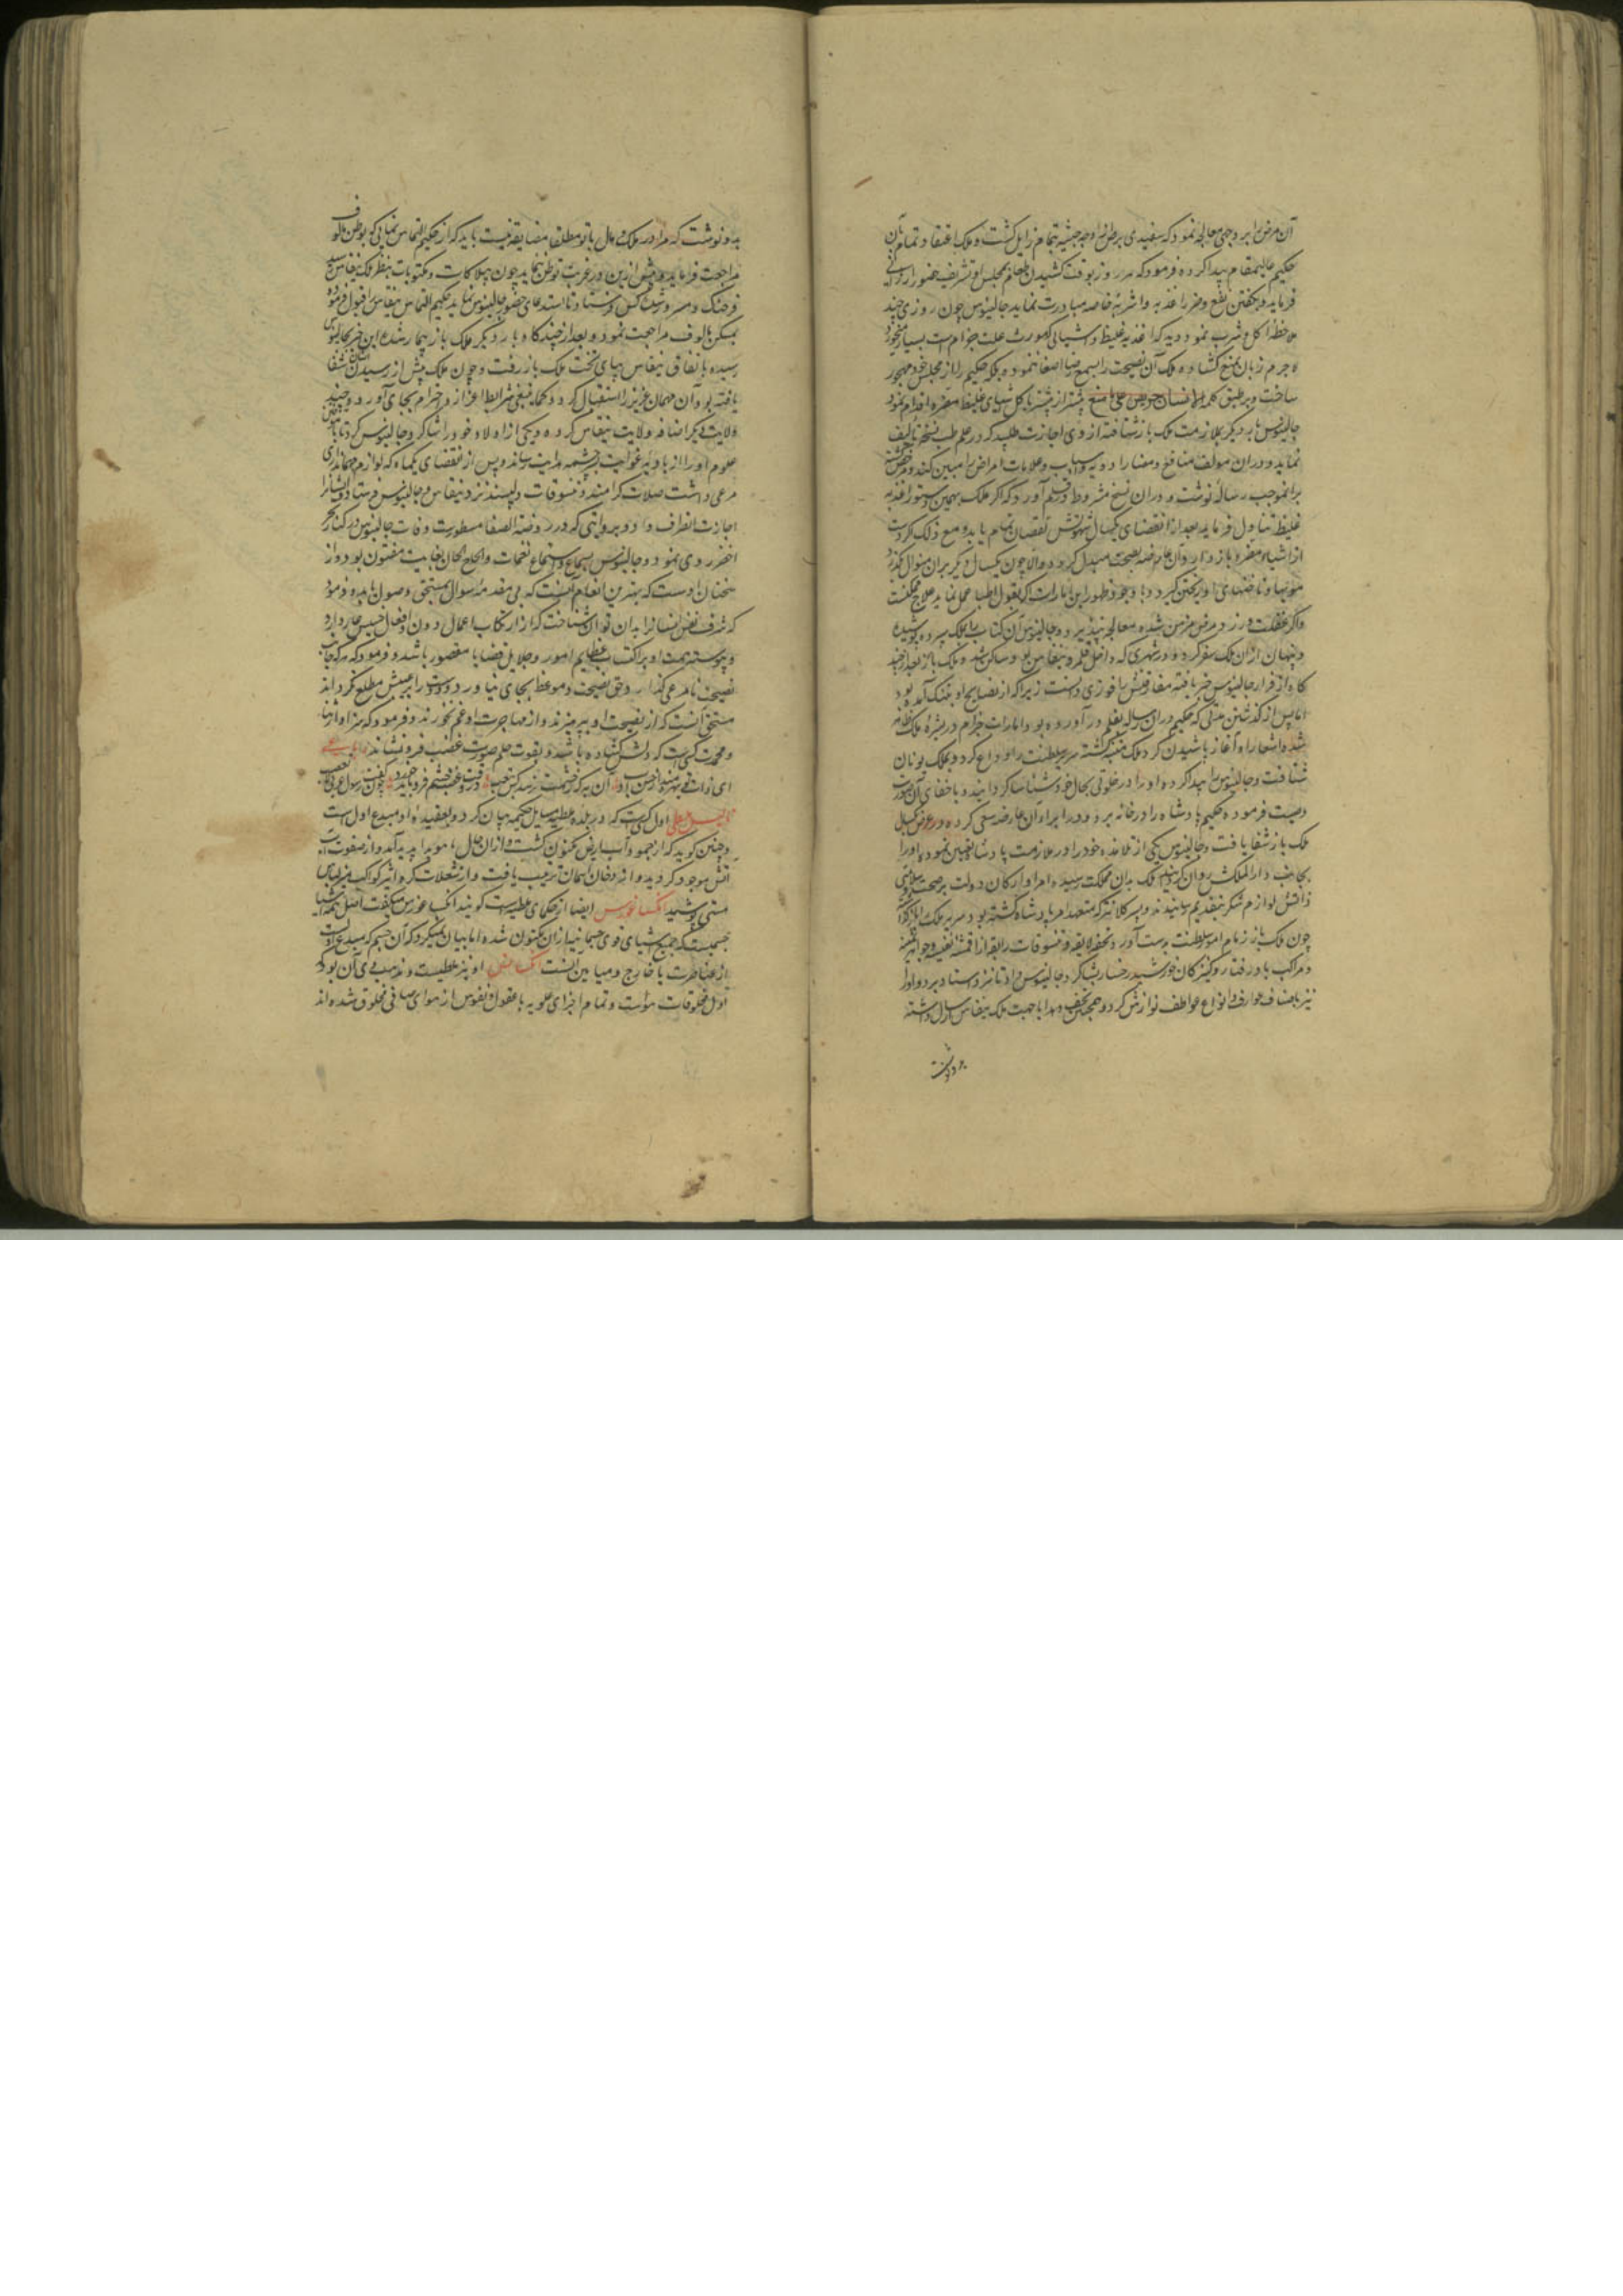 آن مرض را بر وجهی معالجه نمود که سفیدی برص از وجه حبشیه بتمام زایل کشت و ملک اعتقاد تمام بآن
حکیم عالیمقام پیدا کرده فرمود که هر روز بوقت کشیدن طعام بمجلس او تشریف حضور ارزانی
فرماید و بکفتن نفع و ضر اغذیه و اشربه خاصه مبادرت نماید جالینوس چون روزی چند
ملاحظه اکل و شرب نمود دید که اغذیه غلیظ و اشیائی که مورث علت جذام است بسیار میخورد
لاجرم زبان بمنع کشاده ملک آن نصیحت را بسمع رضا اصغا ننموده بلکه حکیم را از مجلس خود مهجور
ساخت و بر طبق کلمه الانسان حریص علی ما منع بیشتر از پیشتر باکل اشیای غلیظ مضره اقدام نمود
جالینوس بار دیگر بملازمت ملک بازشتافته از وی اجازت طلبید که در علم طب نسخه تالیف
نماید و در ان مولف منافع و مضار ادویه و اسباب و علامات امراض را مبین کند و مرخص کشته
برانموجب رساله نوشت و در ان نسخ مشروط در قلم آورد که اکر ملک بهمین دستور اغذیه
غلیظ تناول فرماید بعد از انقضای یکسال شهوتش نقصان تمام یابد و مع ذلک اکر دست
از اشیاء مضره باز دارد آن عارضه بصحت مبدل کردد و الا چون یکسال دیگر بران منوال بکذرد
مویها و ناخنهای او ریختن کیرد و با وجود ظهور این امارات اکر بقول اطبا عمل نماید علاج ممکنست
و اکر غفلت ورزد مرض مزمن شده معالجه نپذیرد و جالینوس آن کتاب را بملک سپرده پوشیده
و پنهان از ان ملک سفر کرد و در شهری که داخل قلمرو نیقاس بود ساکن شد و ملک باز بعد از چند
کاه از فرار جالینوس خبر یافته مفارقتش را فوزی دانست زیرا که از نصایح او بتنک آمده بود
اما پس از کذشتن مدتی که حکیم در ان رساله بقلم در آورده بود امارات جذام در بشره ملک ظاهر
شده اشعار او آغاز پاشیدن کرد ملک متغیر کشته سریر سلطنت را وداع کرد و بملک یونان
شتافت و جالینوس را پیدا کرده او را در خلوتی بحال خود شناسا کردانید و باخفای آن صورت
وصیت فرمود حکیم پادشاه را در خانه برد و در ابراء ان عارضه سعی کرده در عرض یکسال
ملک باز شفا یافت و جالینوس یکی از تلامذه خود را در ملازمت پادشاه تعیین نموده او را
بجانب دار الملکش روان کردانید ملک بدان مملکت رسید و امرا و ارکان دولت بر صحت و سلامتی
ذاتش لوازم شکر بتقدیم رسانیدند و پسر کلانتر که متعهد امر پادشاه کشته بود سریر ملک باو بازکذاشت
چون ملک باز زمام امور سلطنت بدست آورد تحفه لایقه و تنسوقات رایقه از اقمشه نفیسه و جواهر ثمینه
و مراکب بادرفتار و کنیزکان خورشید رخسار بشاکرد جالینوس داد تا نزد استاد برد و او را
نیز باصناف عوارف و انواع عواطف نوازش کرد و همچنین تحف و هدایا بجهت ملک نیقاس ارسال داشته
بدو نوشت
بدو نوشت که مرا در ملک و مال با تو مطلقا مضایقه نیست باید که از حکیم التماس نمایی که بوطن مالوف
مراجعت فرماید و بیش ازین در غربت توطن ننماید چون پیلاکات و مکتوبات بنظر ملک نیقاس رسید
فرحناک و مسرور شد و کس فرستاد تا استدعای حضور جالینوس نماید حکیم التماس نیقاس را قبول فرموده
بمسکن مالوف مراجعت نمود و بعد از چند کاه بار دیگر ملک باز بیمار شد و این خبر بجالینوس
رسیده باتفاق نیقاس بپای تخت ملک باز رفت و چون ملک پیش از رسیدن ایشان شفا
یافته بود آن مهمان عزیز را استقبال کرد و کما ینبغی شرایط اعزاز و احترام بجای آورد و چند
ولایت دیگر اضافه ولایت نیقاس کرده و یکی از اولاد خود را شاکرد جالینوس کرد تا بتلقین
علوم او را از بادیه غوایت بسرچشمه هدایت رساند و پس از انقضای یکماه که لوازم مهمانداری
مرعی داشت صلات کرامند و تنسوقات دلپسند نزد نیقاس و جالینوس فرستاد و ایشانرا
اجازت انصراف داد و بروایتی که در روضة الصفا مسطورست وفات جالینوس در کنار بحر
اخضر روی نمود و جالینوس بسماع و استماع نغمات و الحاح الحان بغایت مفتون بود و از
سخنان اوست که بهترین انعام آنست که بی مقدمه سوال بمستحق وصول یابد و فرمود
که شرف نفس انسانرا بدان توان شناخت که از ارتکاب اعمال دون و افعال خسیس عار دارد
و پیوسته همت او بر اکتساب عظایم امور و جلایل قضایا مقصور باشد و فرمود که هر که جانب
نصیحت نامرعی کذارد و حق نصیحت و موعظه بجای نیاورد و دوست را بر عیبش مطلع نکرداند
مستحق آنست که از نصیحت او بپرهیزند و از مهاجرت او غم نخورند و فرمود که سزاوار ثنا
و محمدت کسی است که دلش کشاده باشد و بقوت حلم صورت غضب فرونشاند رباعی
تالیس ملطی اول کسی است که در بلده ملطیه مسایل حکمیه بیان کرد و بعقیده او مبدع اول است
و چنین کوید که از جمود آب ارض مکنون کشت و از انحلال هوا پدید آمد و از صفوت هوا
آتش موجود کردید و از دخان آسمان ترتیب یافت و از شعلات کره اثیر کواکب منیر لباس
هستی پوشید انکساغورس ایضا از حکمای ملطیه است کویند انکساغورس میکفت اصل همه اشیا
جسمیست که جمیع اشیای قوی جسمانیه از ان مکنون شده اما بیان نمیکرد که آن جسم که مبدع اولست
از عناصرست یا خارج و مباین آنست انکسیمایس او نیز ملطیست و مذهب وی آن بود که
اول مخلوقات هواست و تمام اجزای علویه با عقول و نفوس از هوای صافی مخلوق شده اند